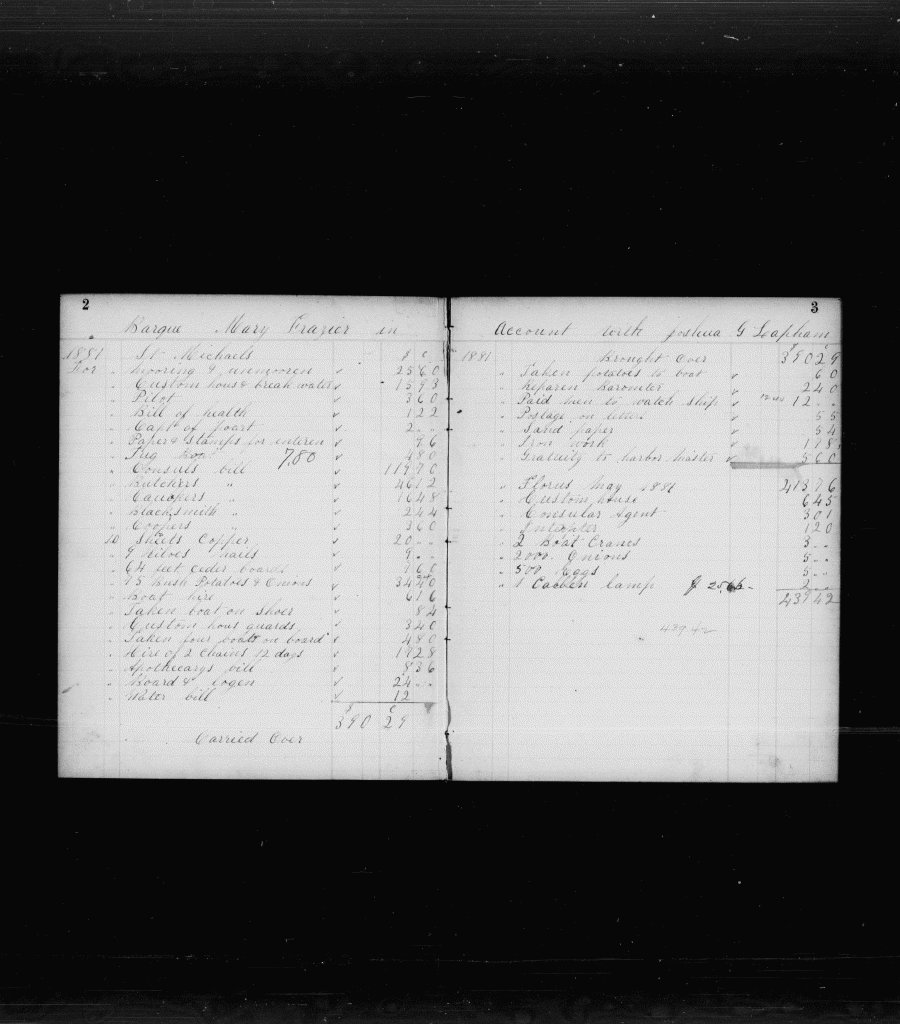 2
Barque Mary Frazier in
1881 St Michaels $ c
For mooring & unmooren 25 60
" Custom hous & break water 15 93
" Pilot 3 60
" Bill of health 1 22
" Capt of poart 2 - -
" Paper & Stamps for enteren 96
" Tug boat 7,80 4 80
" Consuls bill 119 70
" Butchers " 46 12
" Caulkers " 16 48
" Blacksmith " 2 44
" Coopers " 3 60
10 Sheets Copper 20 - -
" 9 kiloes nails 9 - -
" 64 feet ceder boards 1 60
" 15 Bush Potatoes & Onions
" Boat hire 6 16
" Taken boat on shoer 84
" Custom hous guards 3 40
" Taken four boats on board 4 80
" Hire of 2 Chains 12 days 19 28
" Apothecarys bill 8 36
" Board & logen 24 - -
" Water bill 12
$ c
390 29
Carried Over
3
Account With Joshua G Leapham
$ c
1881 Brought Over 390 29
" Taken potatoes to boat 60
" Reparen Barometer 2 40
" Paid men to watch ship 12 - -
" Postage on letters 55
" Sand paper 54
" Iron work 1 78
" Gratuity to harbor master 5 60
" Florus May 1881 413 76
" Custom house 6 45
" Consular Agent 3 01
" 1 20
" 2 Boat Cranes 3 - -
" 2000 Onions 5 - -
" 500 Eggs 5 - -
" 1 Cabben lamp 2 - -
439 42
439 42